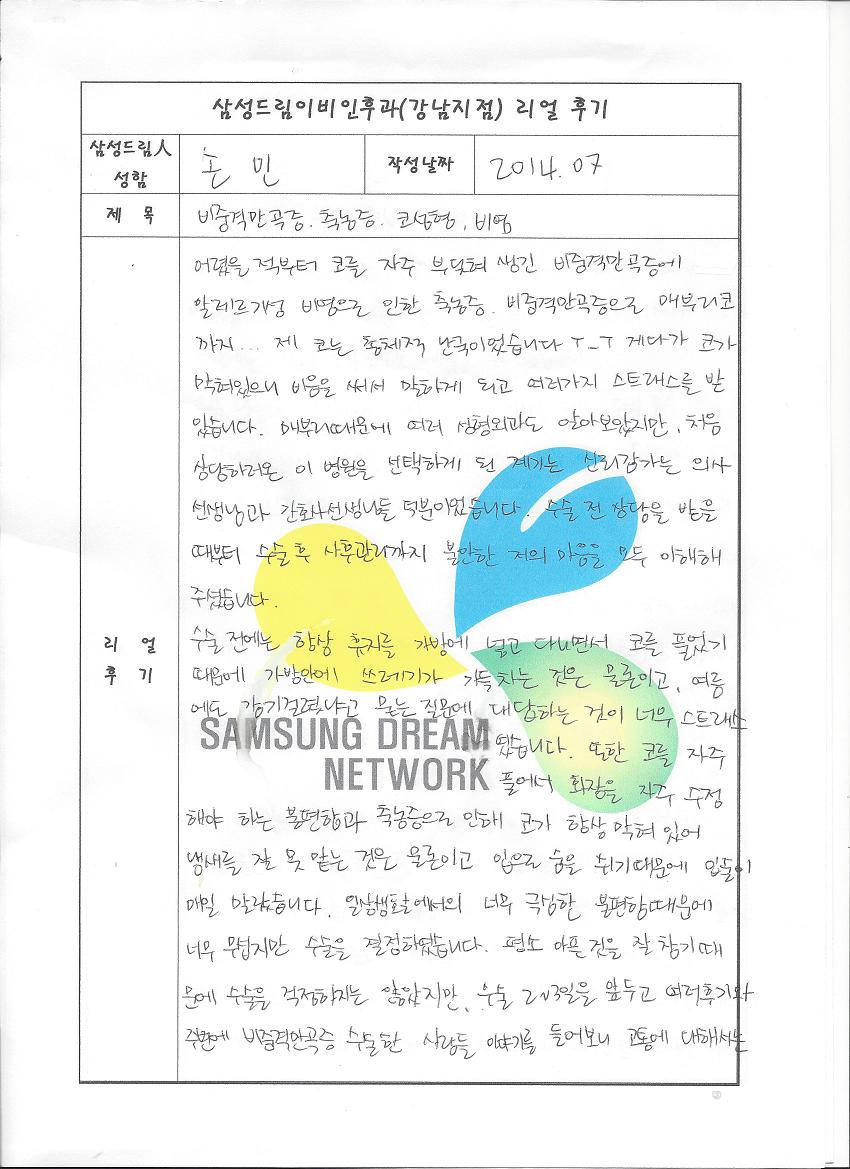 삼성드림이비인후과(강남지점) 리얼 후기
삼성드림人
성함
손 민
작성날짜
2014. 07
제 목
비중격만곡증. 축농증. 코성형, 비염
어렸을 적부터 코를 자주 부딪혀 생긴 비중격만곡증에
알레르기성 비염으로 인한 축농증. 비중격만곡증으로 매부리코
까지... 제 코는 총체적 난국이었습니다 T_T 게다가 코가
막혀있으니 비음을 써서 말하게 되고 여러가지 스트레스를 받
았습니다. 매부리때문에 여러 성형외과도 알아보았지만, 처음
상담하러온 이 병원을 선택하게 된 계기는 신뢰감가는 의사
선생님과 간호사선생님들 덕분이었습니다. 수술 전 상담을 받을
때부터 수술 후 사후관리까지 불안한 저의 마음을 모두 이해해
주셨습니다.
리 얼
후 기
수술 전에는 항상 휴지를 가방에 넣고 다니면서 코를 풀었기
때문에 가방안에 쓰레기가 가득차는 것은 물론이고, 여름
에도 감기걸렸냐고 묻는 질문에 대답하는 것이 너무 스트레스
였습니다. 또한 코를 자주
풀어서 화장을 자주 수정
해야 하는 불편함과 축농증으로 인해 코가 항상 막혀 있어
냄새를 잘 못 맡는 것은 물론이고 입으로 숨을 쉬기때문에 입술이
매일 말랐습니다. 일상생활에서의 너무 극심한 불편함때문에
너무 무섭지만 수술을 결정하였습니다. 평소 아픈것을 잘 참기때
문에 수술을 걱정하지는 않았지만, 수술 2~3일을 앞두고 여러후기와
주변에 비중격만곡증 수술한 사람들 이야기를 들어보니 고통에 대해서는
SAMSUNG DREAM
NETWORK